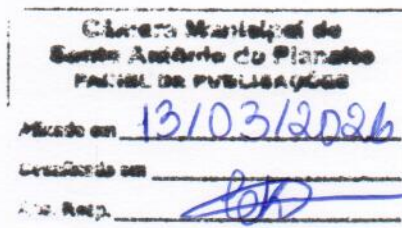 Câmara Municipal de
Santo Antônio do Planalto
PAINEL DE PUBLICAÇÕES
Afixado em 13/03/2026
em
Ass. Resp.